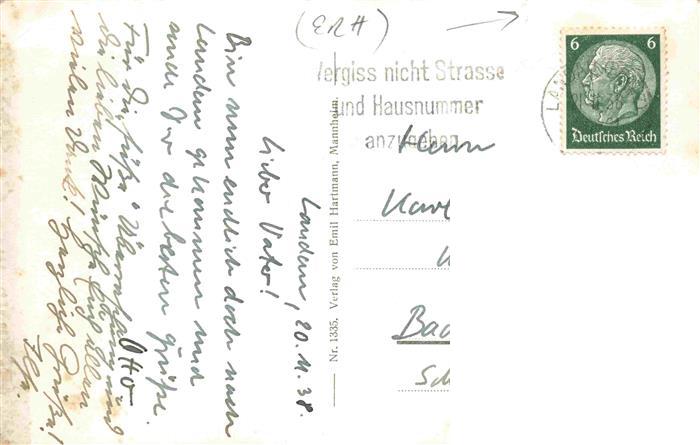 Landau, 20.11.38.
Lieber Vater!
Bin nun endlich doch nach
Landau gekommen und
sende Dir die besten Grüße.
Otto
Für die süße Überraschung und
die lieben Wünsche Euch allen
vielen Dank! Herzliche Grüße!
Ilse.
Nr. 1335. Verlag von Emil Hartmann, Mannheim.
(ERH)
Vergiss nicht Strasse
und Hausnummer
anzugeben
6 6
Deutsches Reich
Herrn
Bad